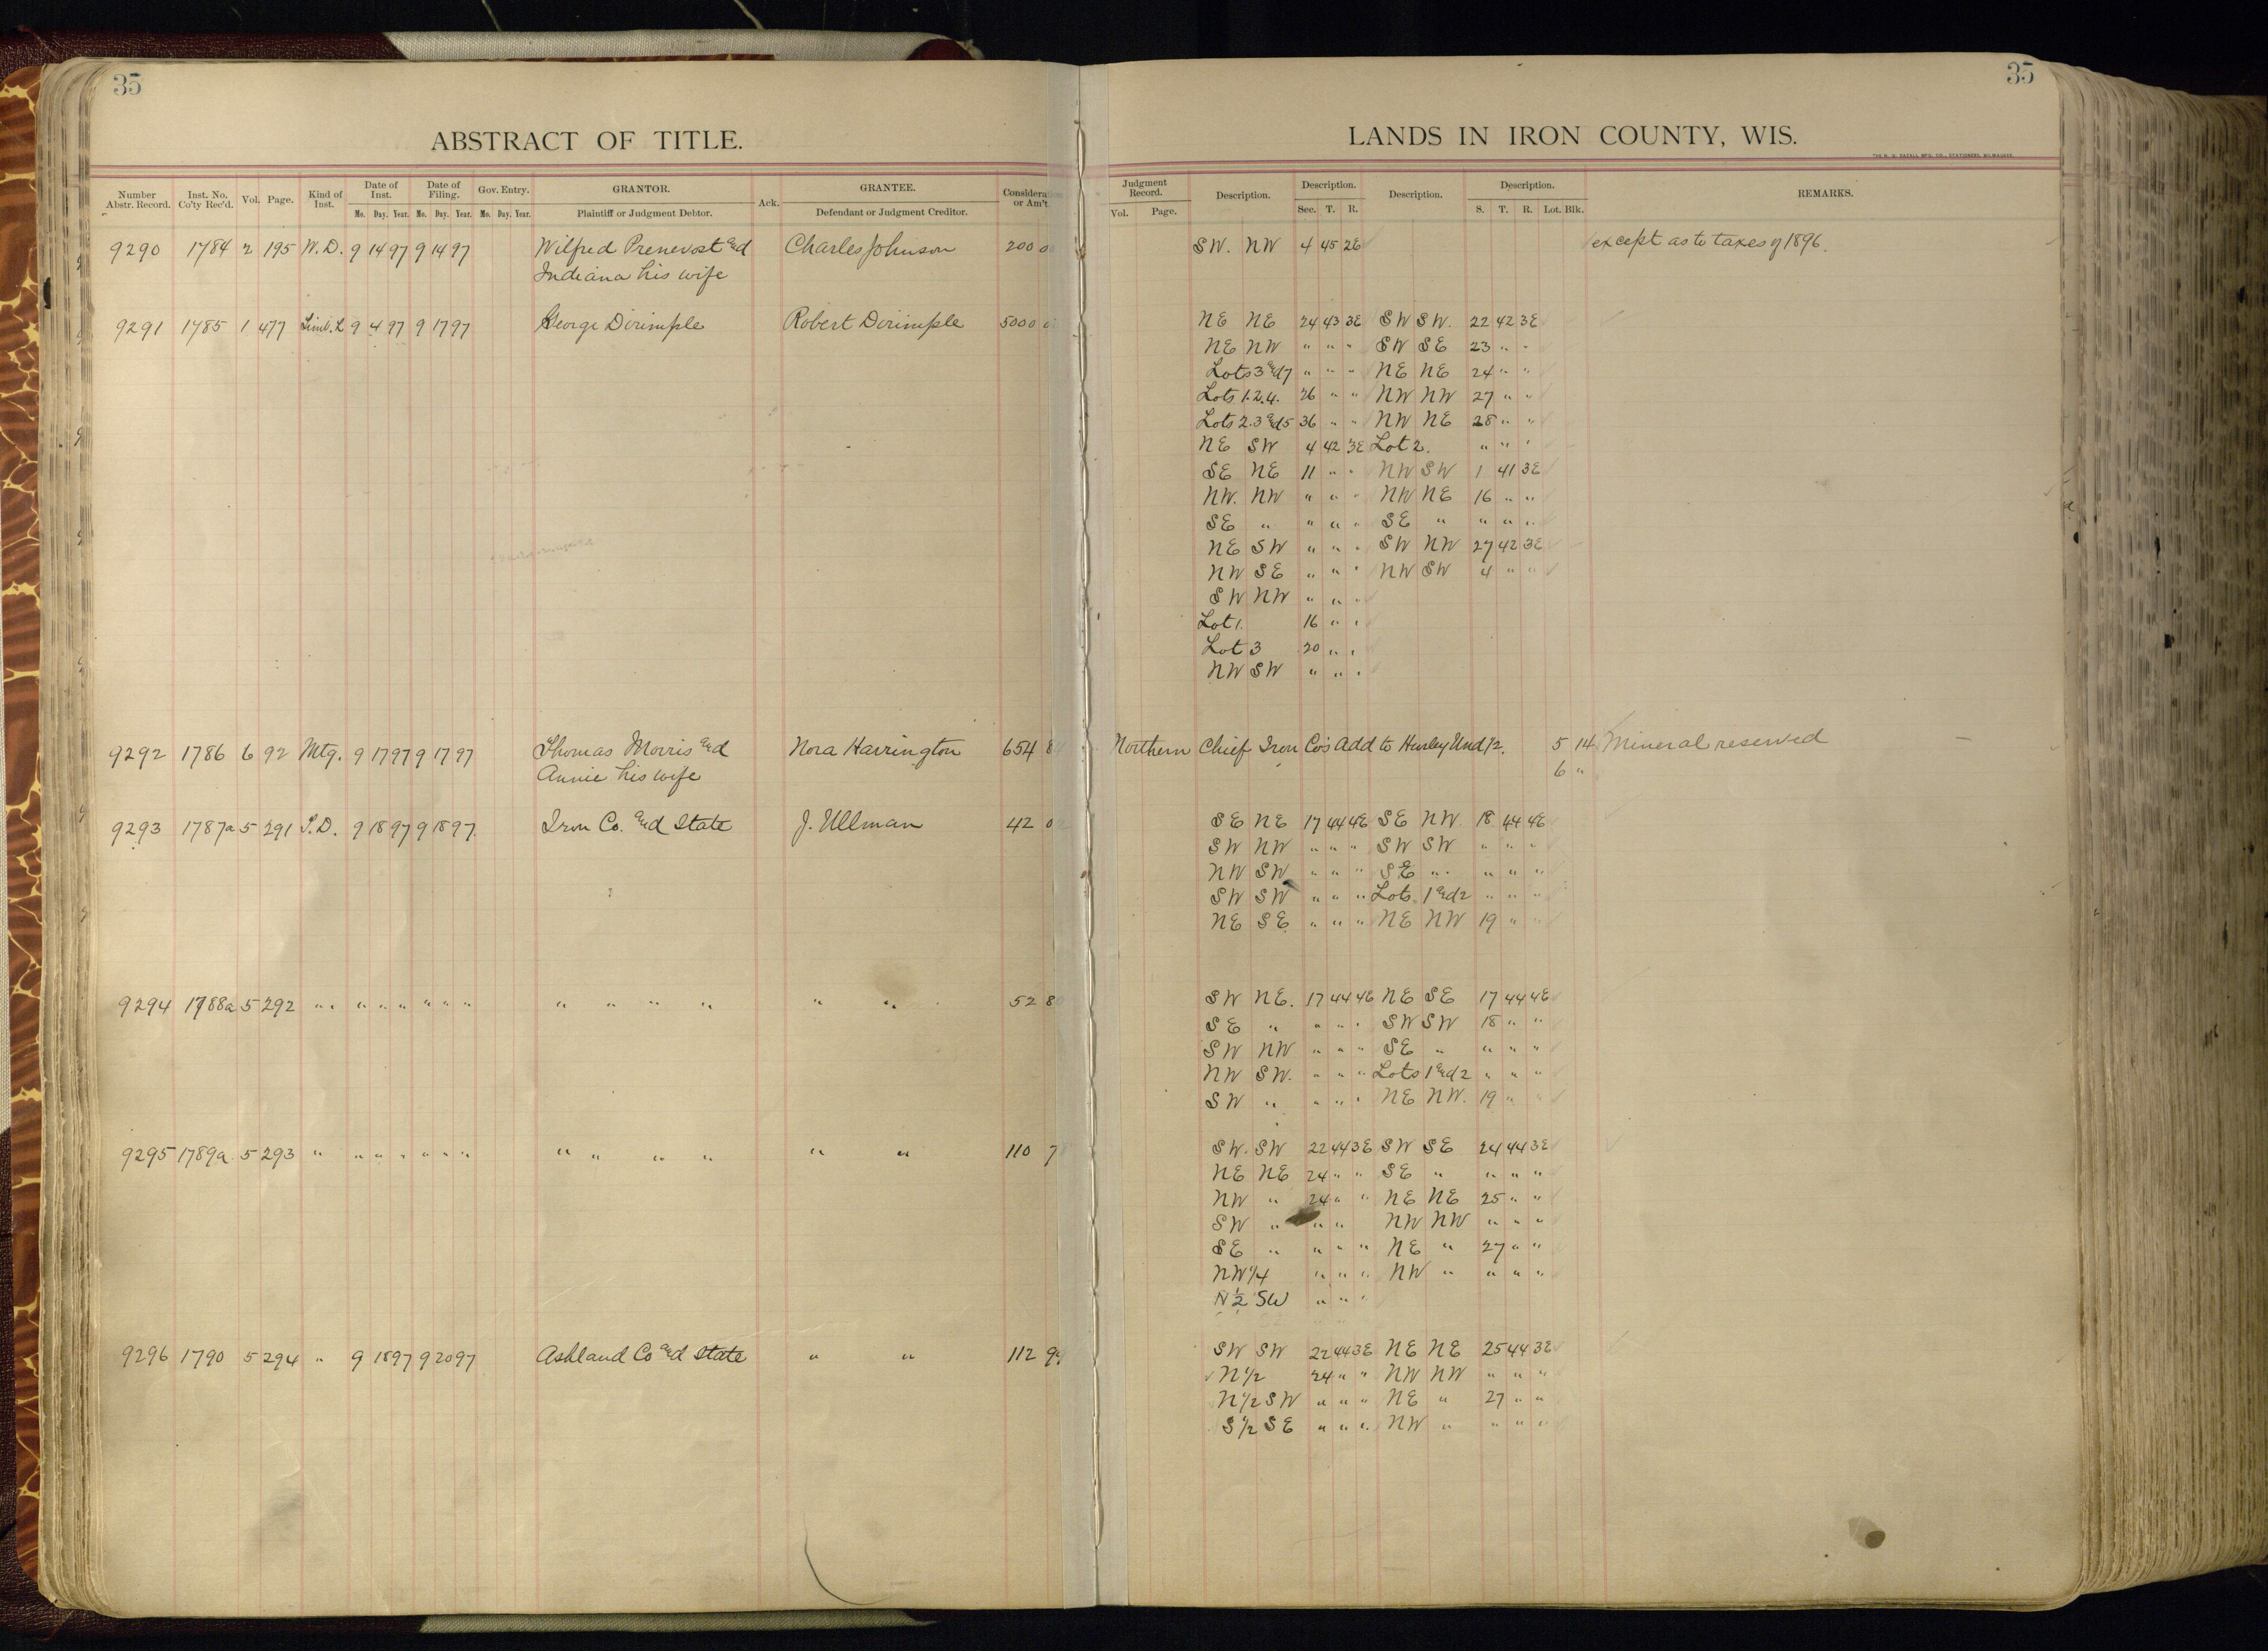 35
35
ABSTRACT OF TITLE.
LANDS IN IRON COUNTY, WIS.
Number Abstr. Record. Inst. No. Co'ty Rec'd. Vol. Page. Kind of Inst. Date of Inst. Mo. Day. Year. Date of Filing. Mo. Day. Year. Gov. Entry. Mo. Day. Year. GRANTOR. Plaintiff or Judgment Debtor. Ack. GRANTEE. Defendant or Judgment Creditor. Consideration or Am't.
Judgment Record. Vol. Page. Description. Description. Sec. T. R. Description. Description. S. T. R. Lot. Blk. REMARKS.
9290 1784 2 195 W.D. 9 14 97 9 14 97 Wilfred Prenevost and Charles Johnson 200 0 SW. NW 4 45 2E except as to taxes of 1896.
Indiana his wife
9291 1785 1 477 9 4 97 9 17 97 George Dirimple Robert Dirimple 5000 NE NE 24 43 3E SW SW. 22 42 3E
NE NW " " " SW SE 23 " "
Lots 3 and 7 " " " NE NE 24 " "
Lots 1.2.4. 26 " " NW NW 27 " "
Lots 2.3 and 5 36 " " NW NE 28 " "
NE SW 4 42 3E Lot 2. " " "
SE NE 11 " " NW SW 1 41 3E
NW. NW " " " NW NE 16 " "
SE " " " " SE " " " "
NE SW " " " SW NW 27 42 3E
NW SE " " " NW SW 4 " "
SW NW " " "
Lot 1. 16 " "
Lot 3 20 " "
NW SW " " "
9292 1786 6 92 Mtg. 9 17 97 9 17 97 Thomas Morris and Nora Harrington 654 8 Northern Chief Iron Co's Add to Hurley Und 1/2. 5 14 Mineral reserved
Annie his wife 6 "
9293 1787a 5 291 T.D. 9 18 97 9 18 97. Iron Co. and State J. Ullman 42 0 SE NE 17 44 4E SE NW. 18 44 4E
SW NW " " " SW SW " " "
NW SW " " " SE " " " "
SW SW " " " Lots 1 and 2 " " "
NE SE " " " NE NW 19 " "
9294 1788a 5 292 " " " " " " " " " " " " " " 52 8 SW NE. 17 44 4E NE SE 17 44 4E
SE " " " " SW SW 18 " "
SW NW " " " SE " " " "
NW SW. " " " Lots 1 and 2 " " "
SW " " " " NE NW. 19 " "
9295 1789a 5 293 " " " " " " " " " " " " " 110 7 SW. SW 22 44 3E SW SE 24 44 3E
NE NE 24 " " SE " " " "
NW " 24 " " NE NE 25 " "
SW " " " NW NW " " "
SE " " " " NE " 27 " "
NW 1/4 " " " NW " " " "
N 1/2 SW " " "
9296 1790 5 294 " 9 18 97 9 20 97 Ashland Co and State " " 112 99 SW SW 22 44 3E NE NE 25 44 3E
N 1/2 24 " " NW NW " " "
N 1/2 SW " " " NE " 27 " "
S 1/2 SE " " " NW " " " "